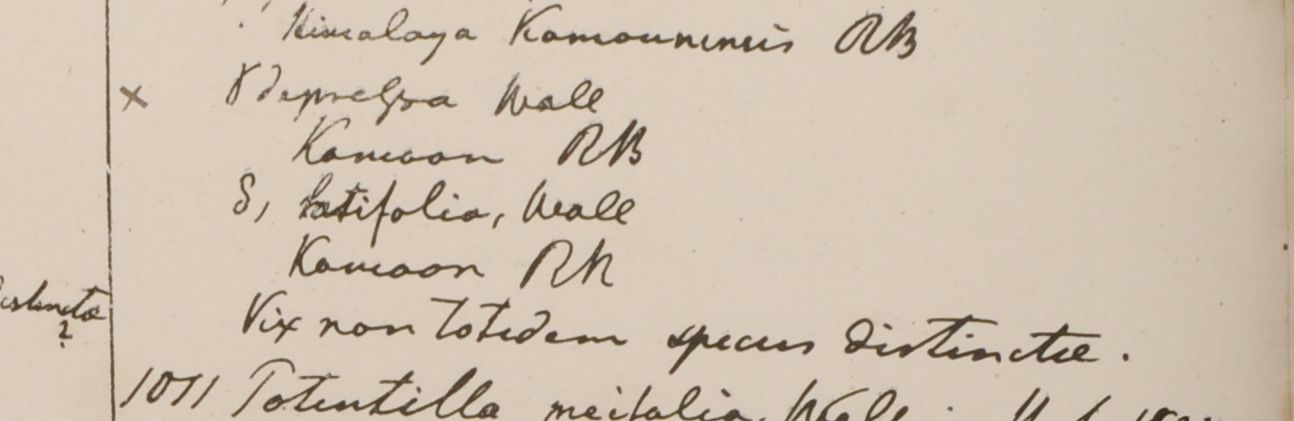 Himalaya Kamounensis RB
× γ depressa Wall
Kamaon RB
δ, latifolia, Wall
Kamaon RB
distinctæ ?
Vix non totidem species distinctæ.
1011 Potentilla Wall